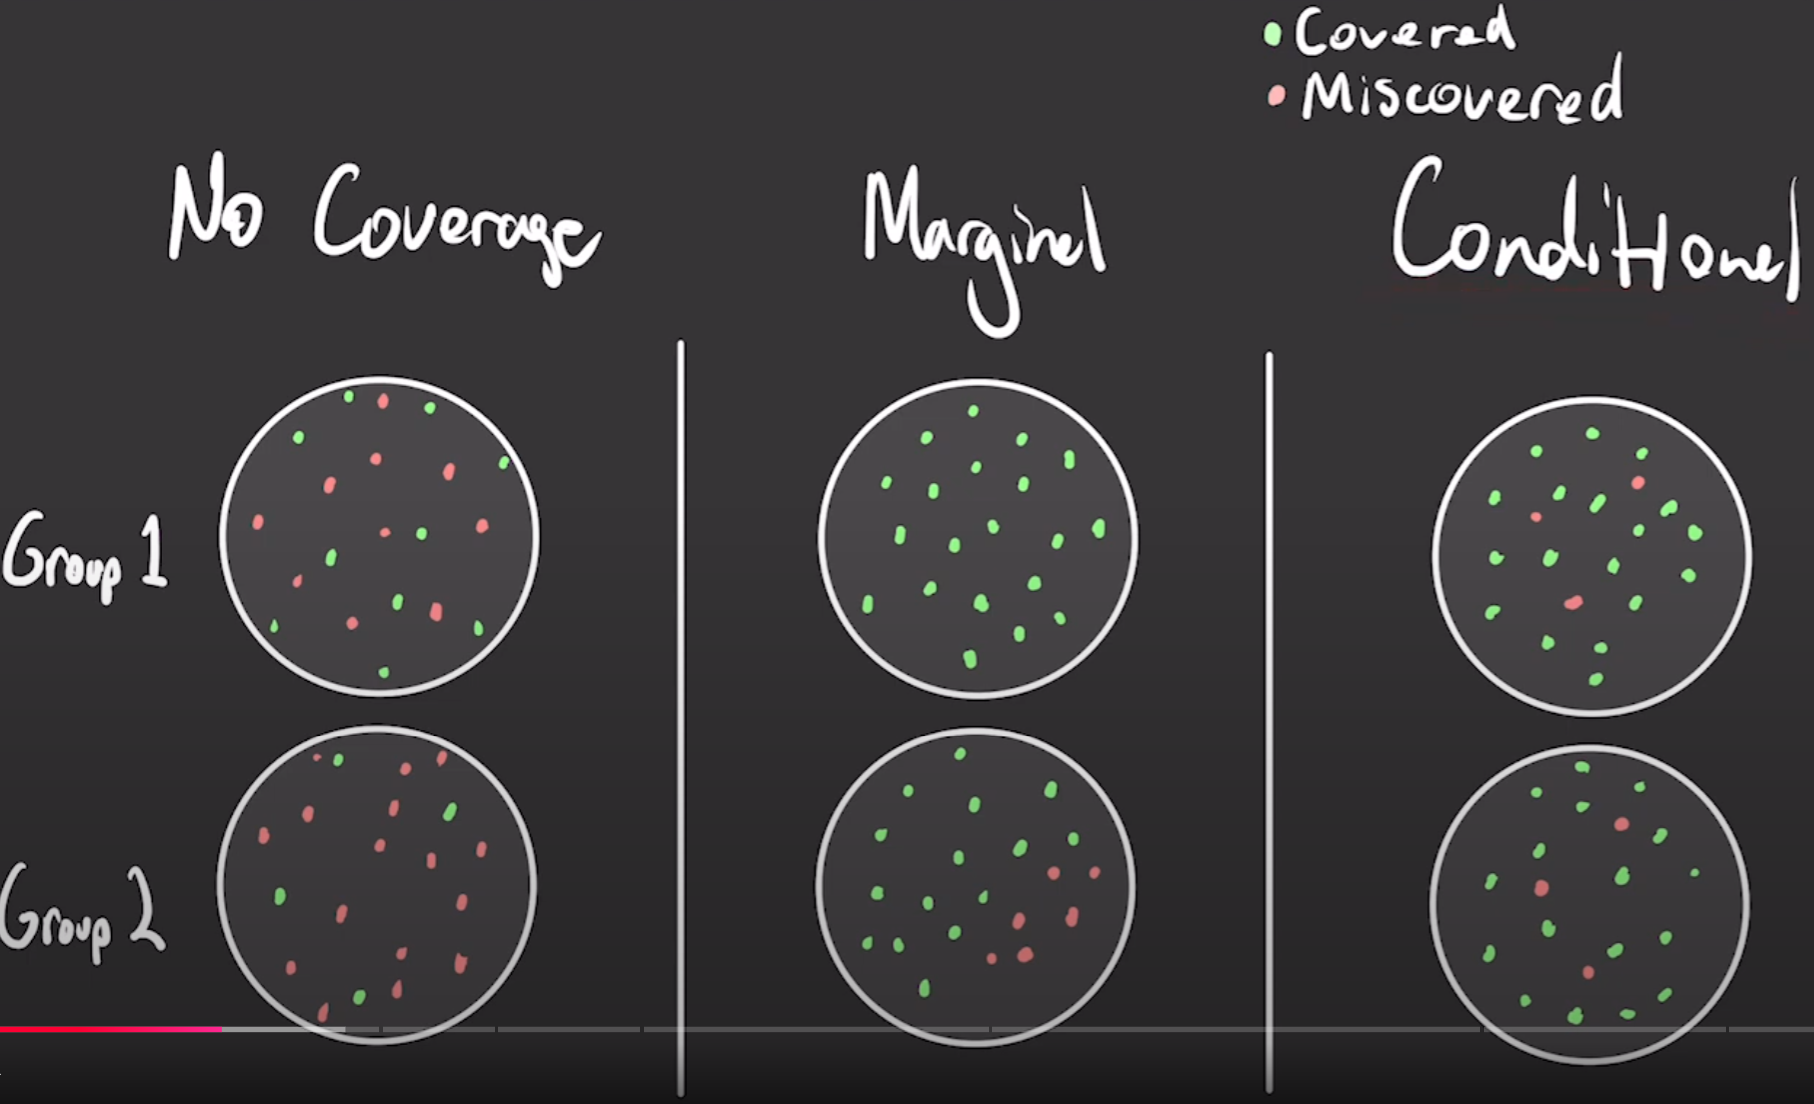 Covered
Miscovered
No Coverage
Marginal
Conditional
Group 1
Group 2